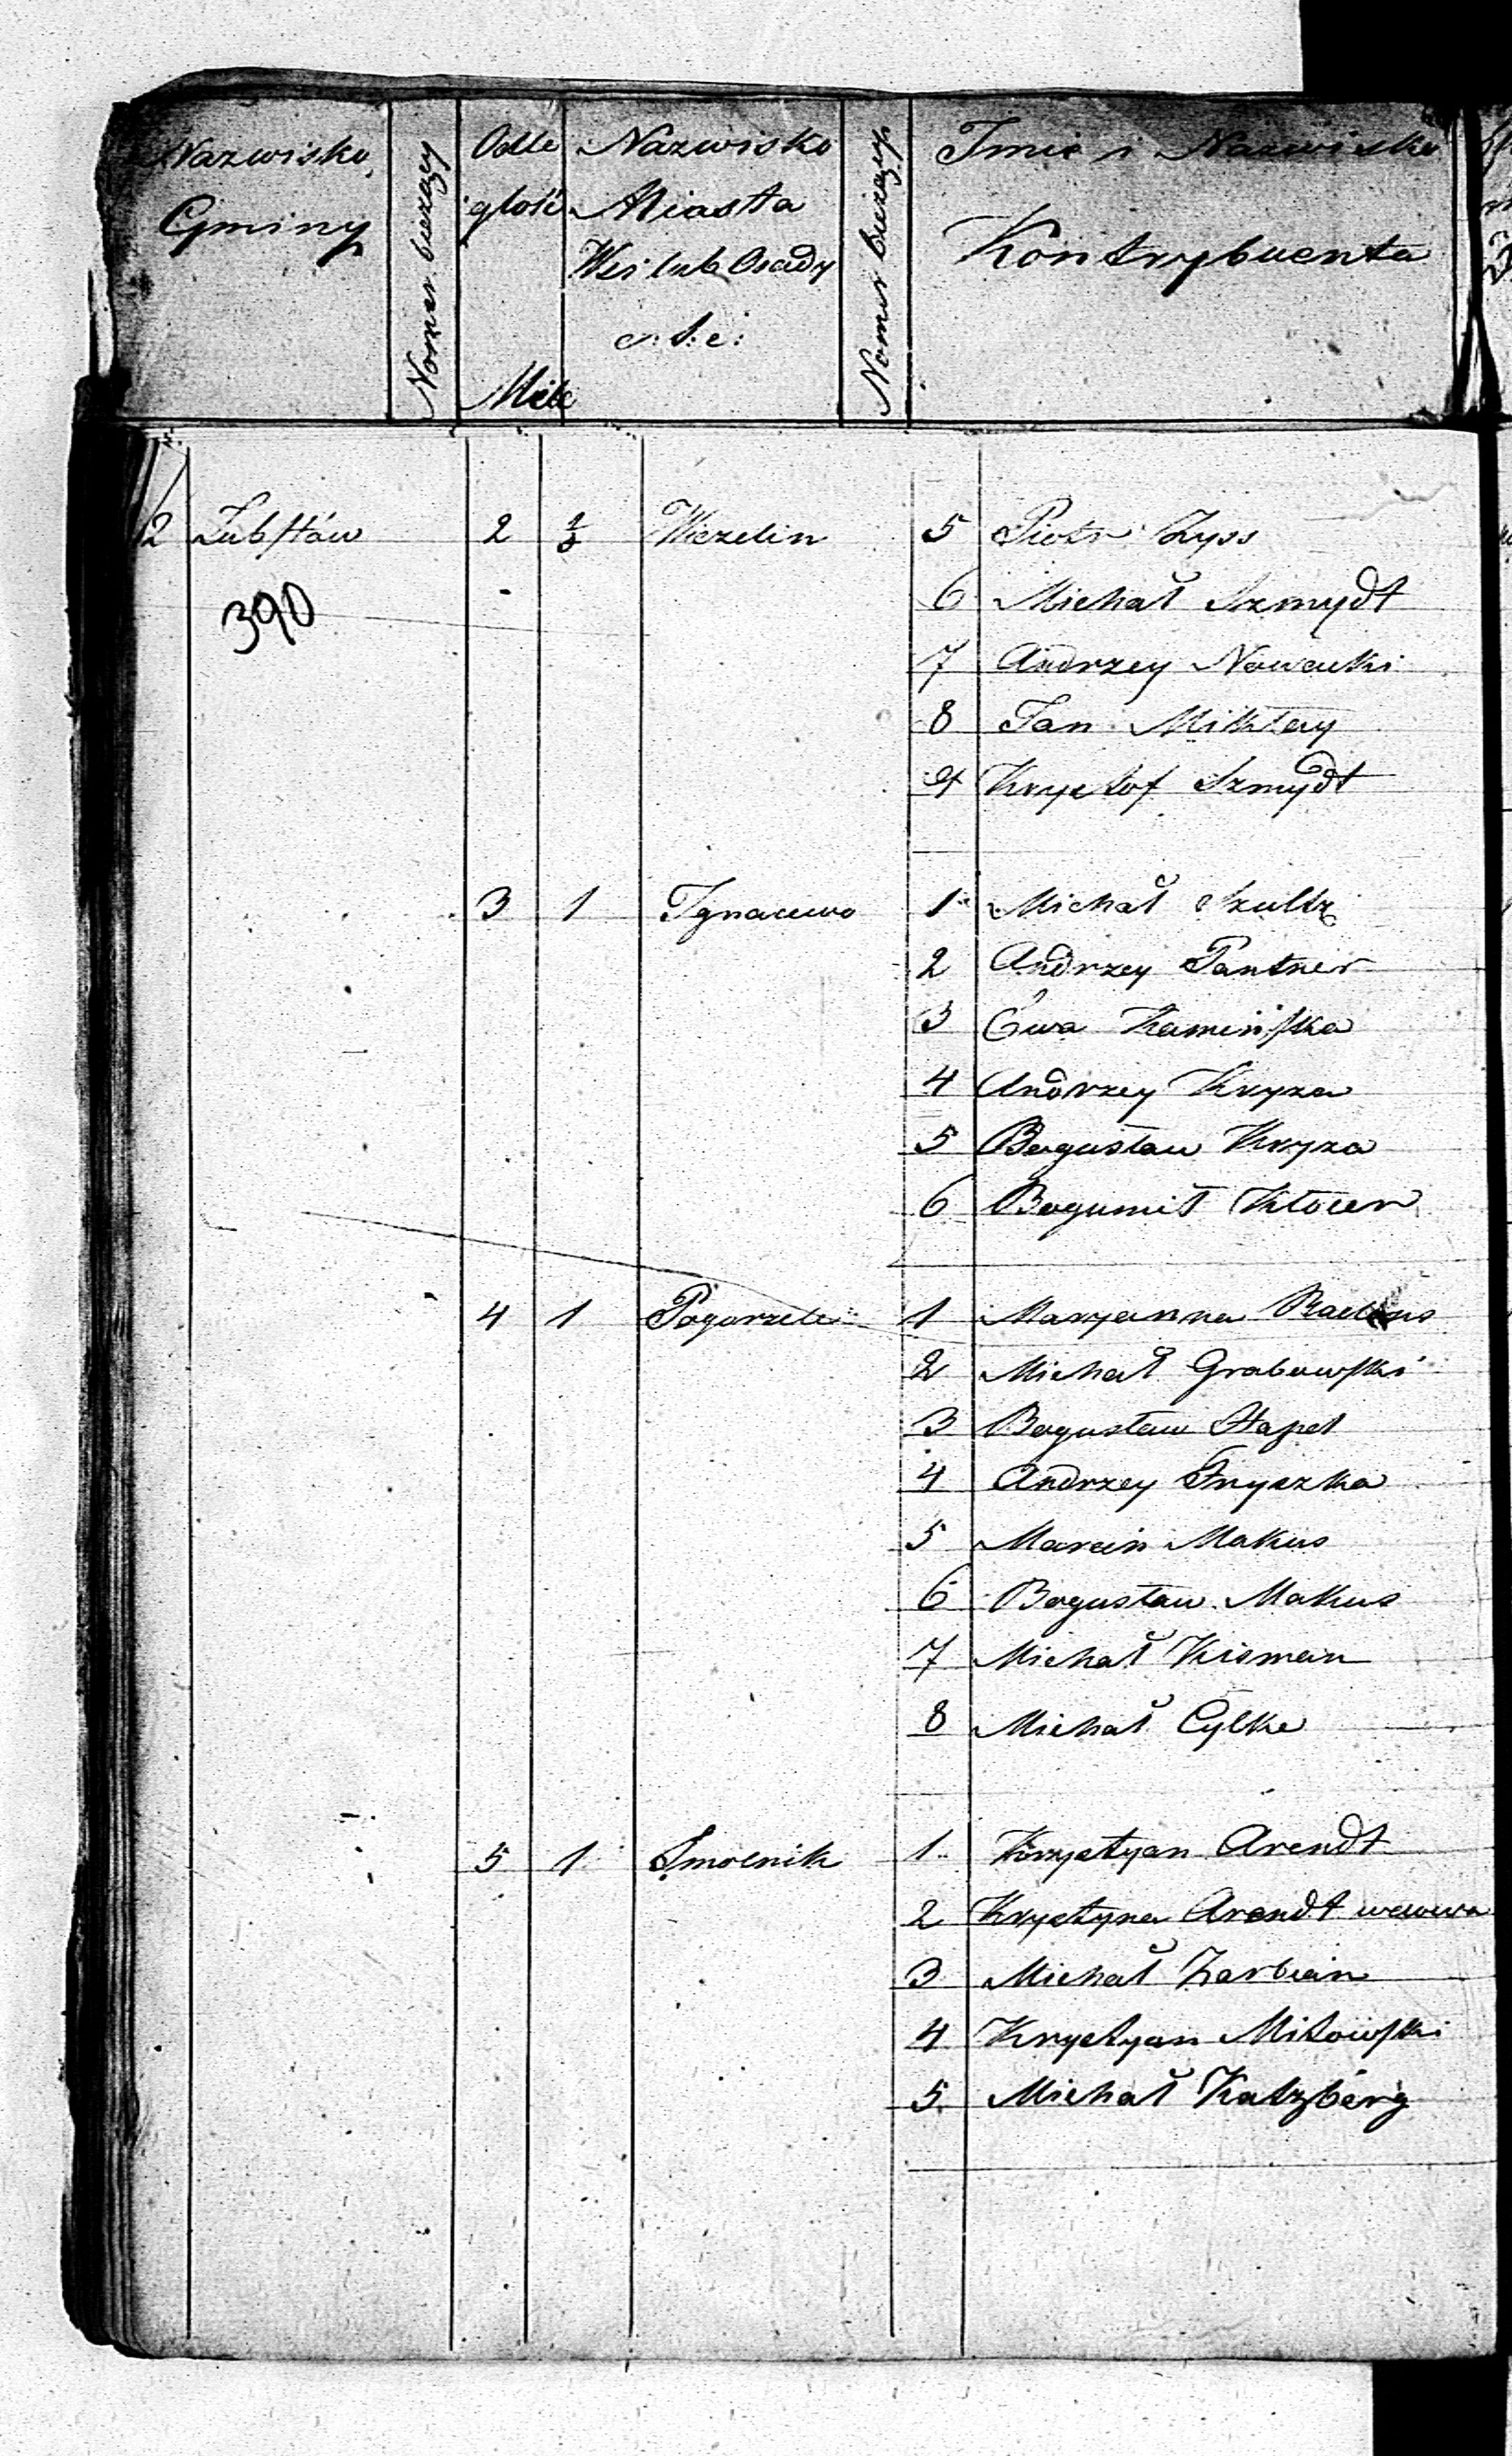 Nazwisko Gminy
Numer bieżący
Odle głość Mile
Nazwisko Miasta Wsi lub Osady
Numer bieżący
Imie i Nazwisko Kontrybuenta
2 Lubstów 2 Wierzelin 5 Piotr Zyss
390
6 Michał Szmydt
7 Andrzey Nowacki
8 Jan Miklay
9 Krysztof Szmydt
3 1 Ignacewo 1 Michał Szultz
2 Andrzey Pantner
3 Ewa Kamińska
4 Andrzey Kryza
5 Bogusław Kryza
6 Bogumił
4 1 Pogorzele 1 Maryanna
2 Michał Grabowski
3 Bogusław
4 Andrzey Fryszka
5 Marcin Makus
6 Bogusław Makus
7 Michał Kisman
8 Michał Cylke
5 1 Smolnik 1 Krystyan Arendt
2 Krystyna Arendt wdowa
3 Michał Zerbian
4 Krystyan Miłowski
5 Michał Katzberg